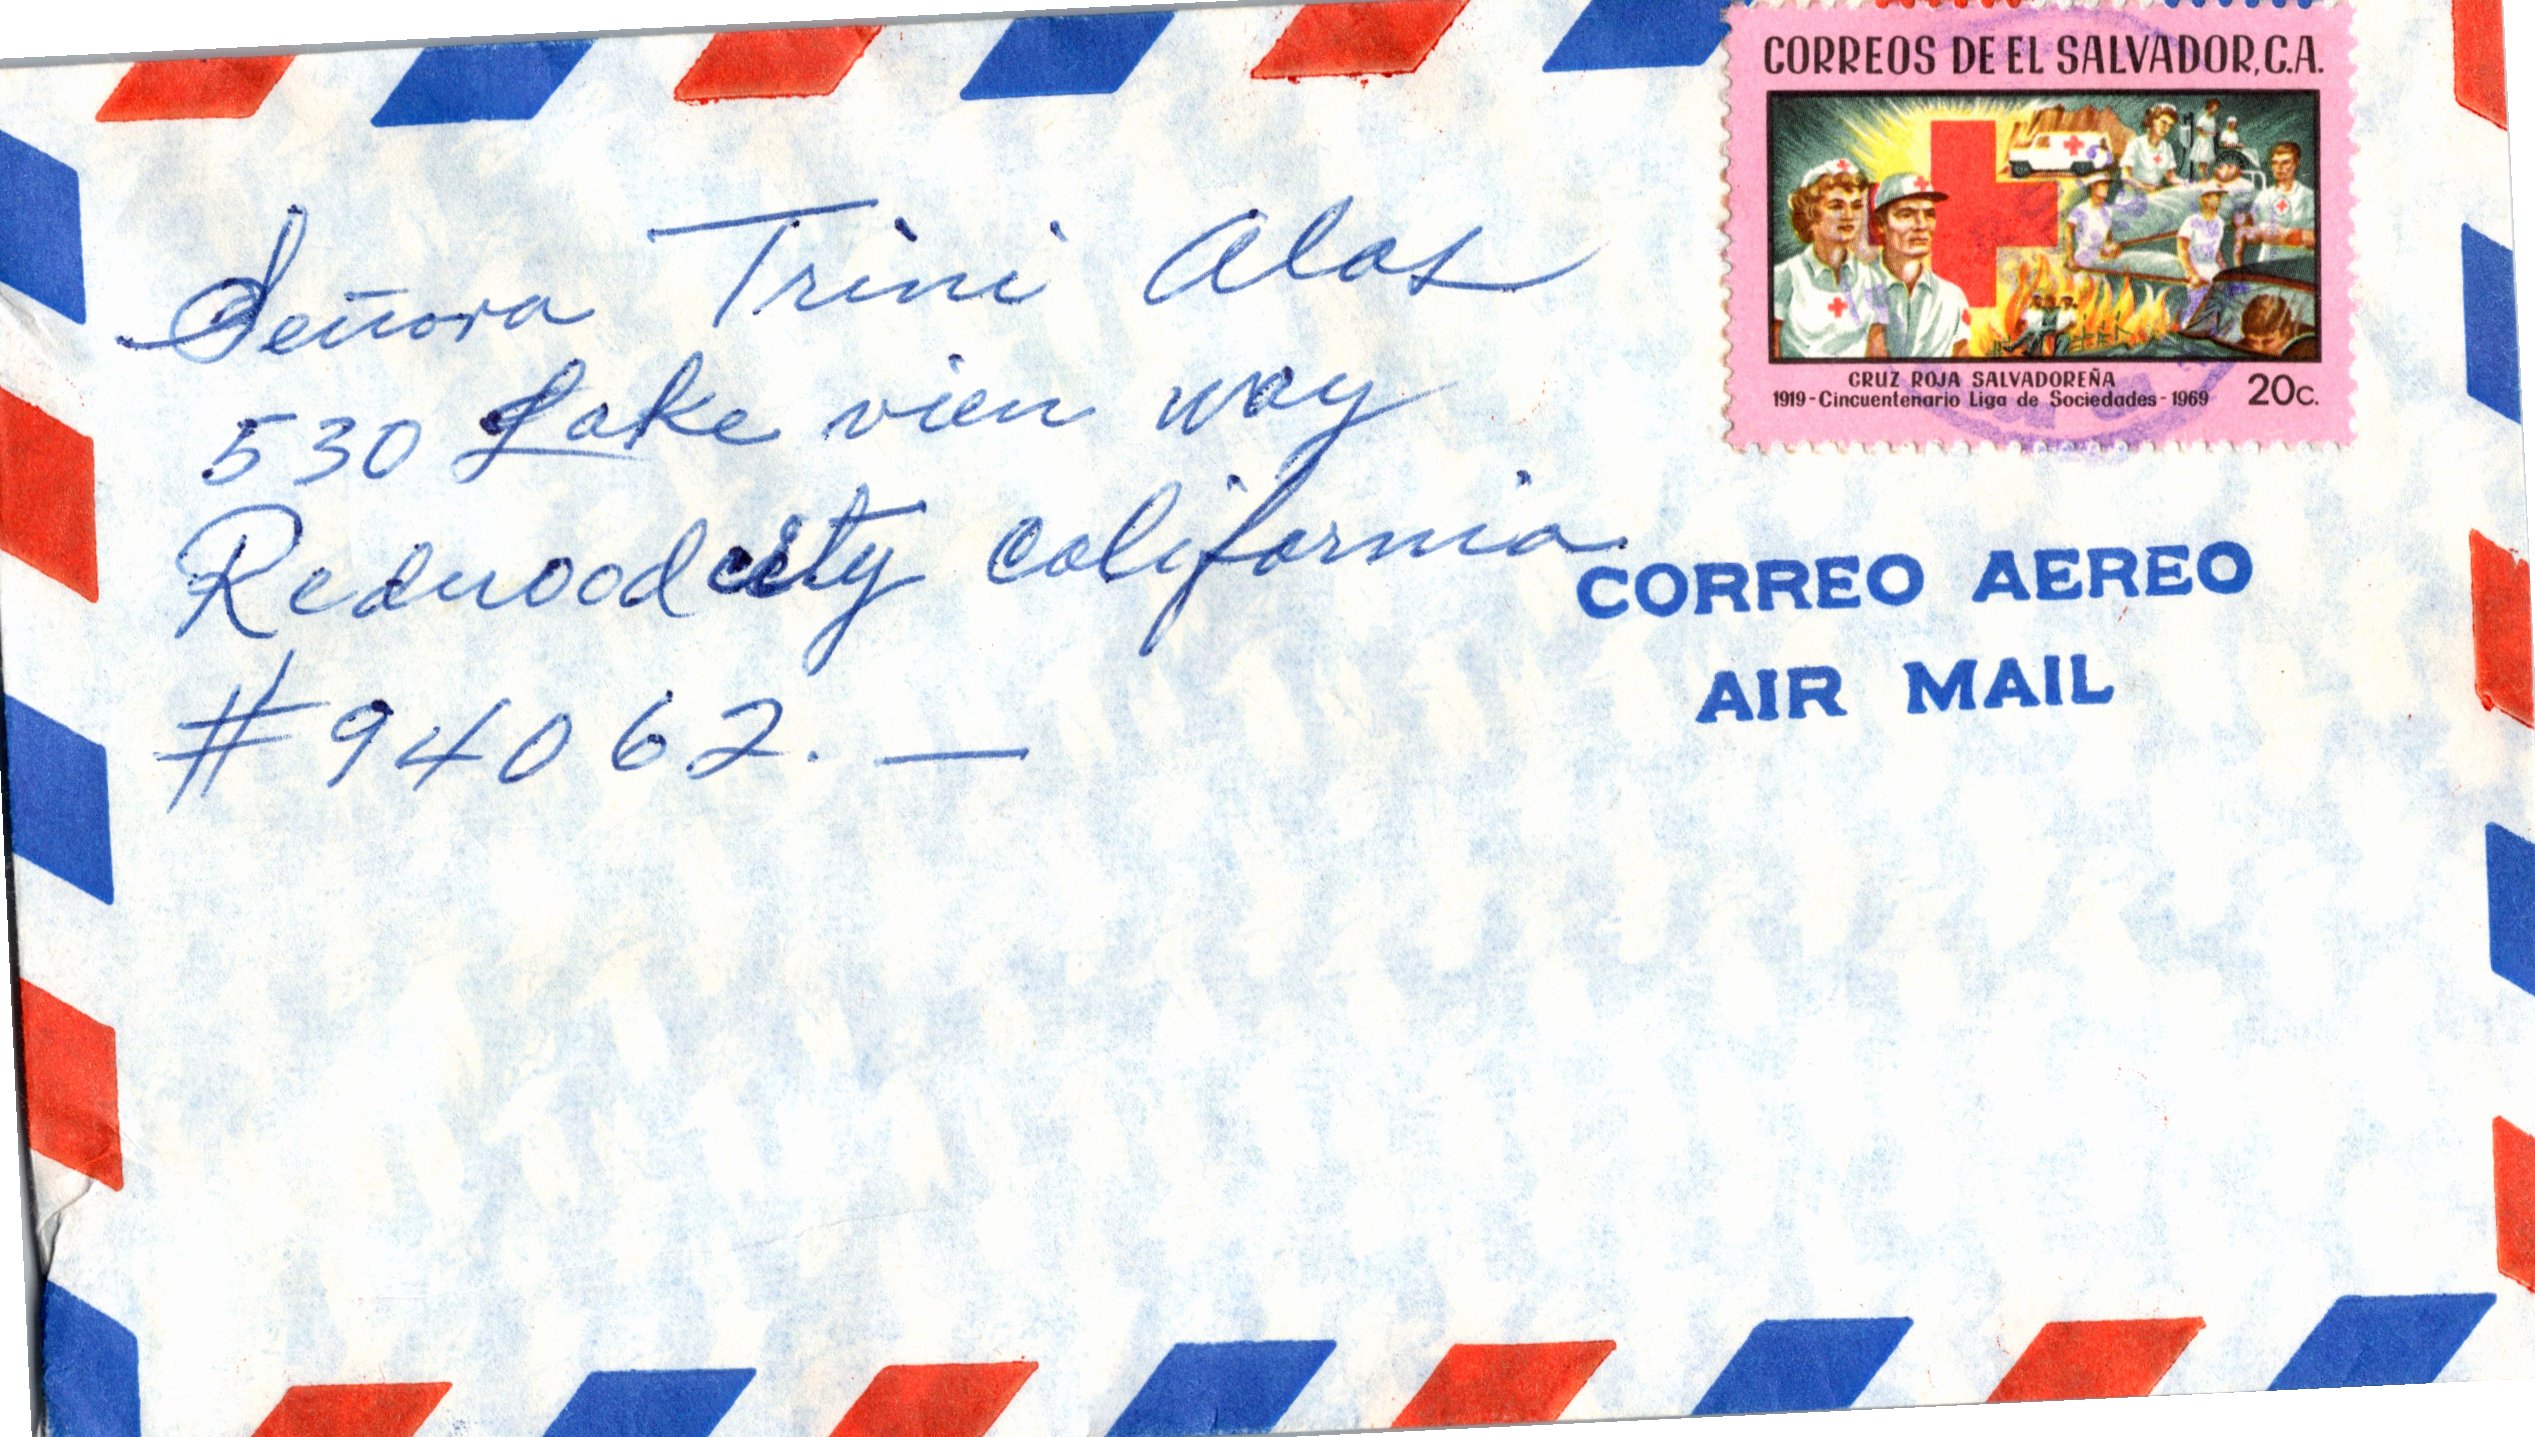 CORREOS DE EL SALVADOR, C.A.
CRUZ ROJA SALVADOREÑA
1919 - Cincuentenario Liga de Sociedades - 1969
20c.
Señora Trini Alas
530 Lake view way
Redwood city California
# 94062. —
CORREO AEREO
AIR MAIL